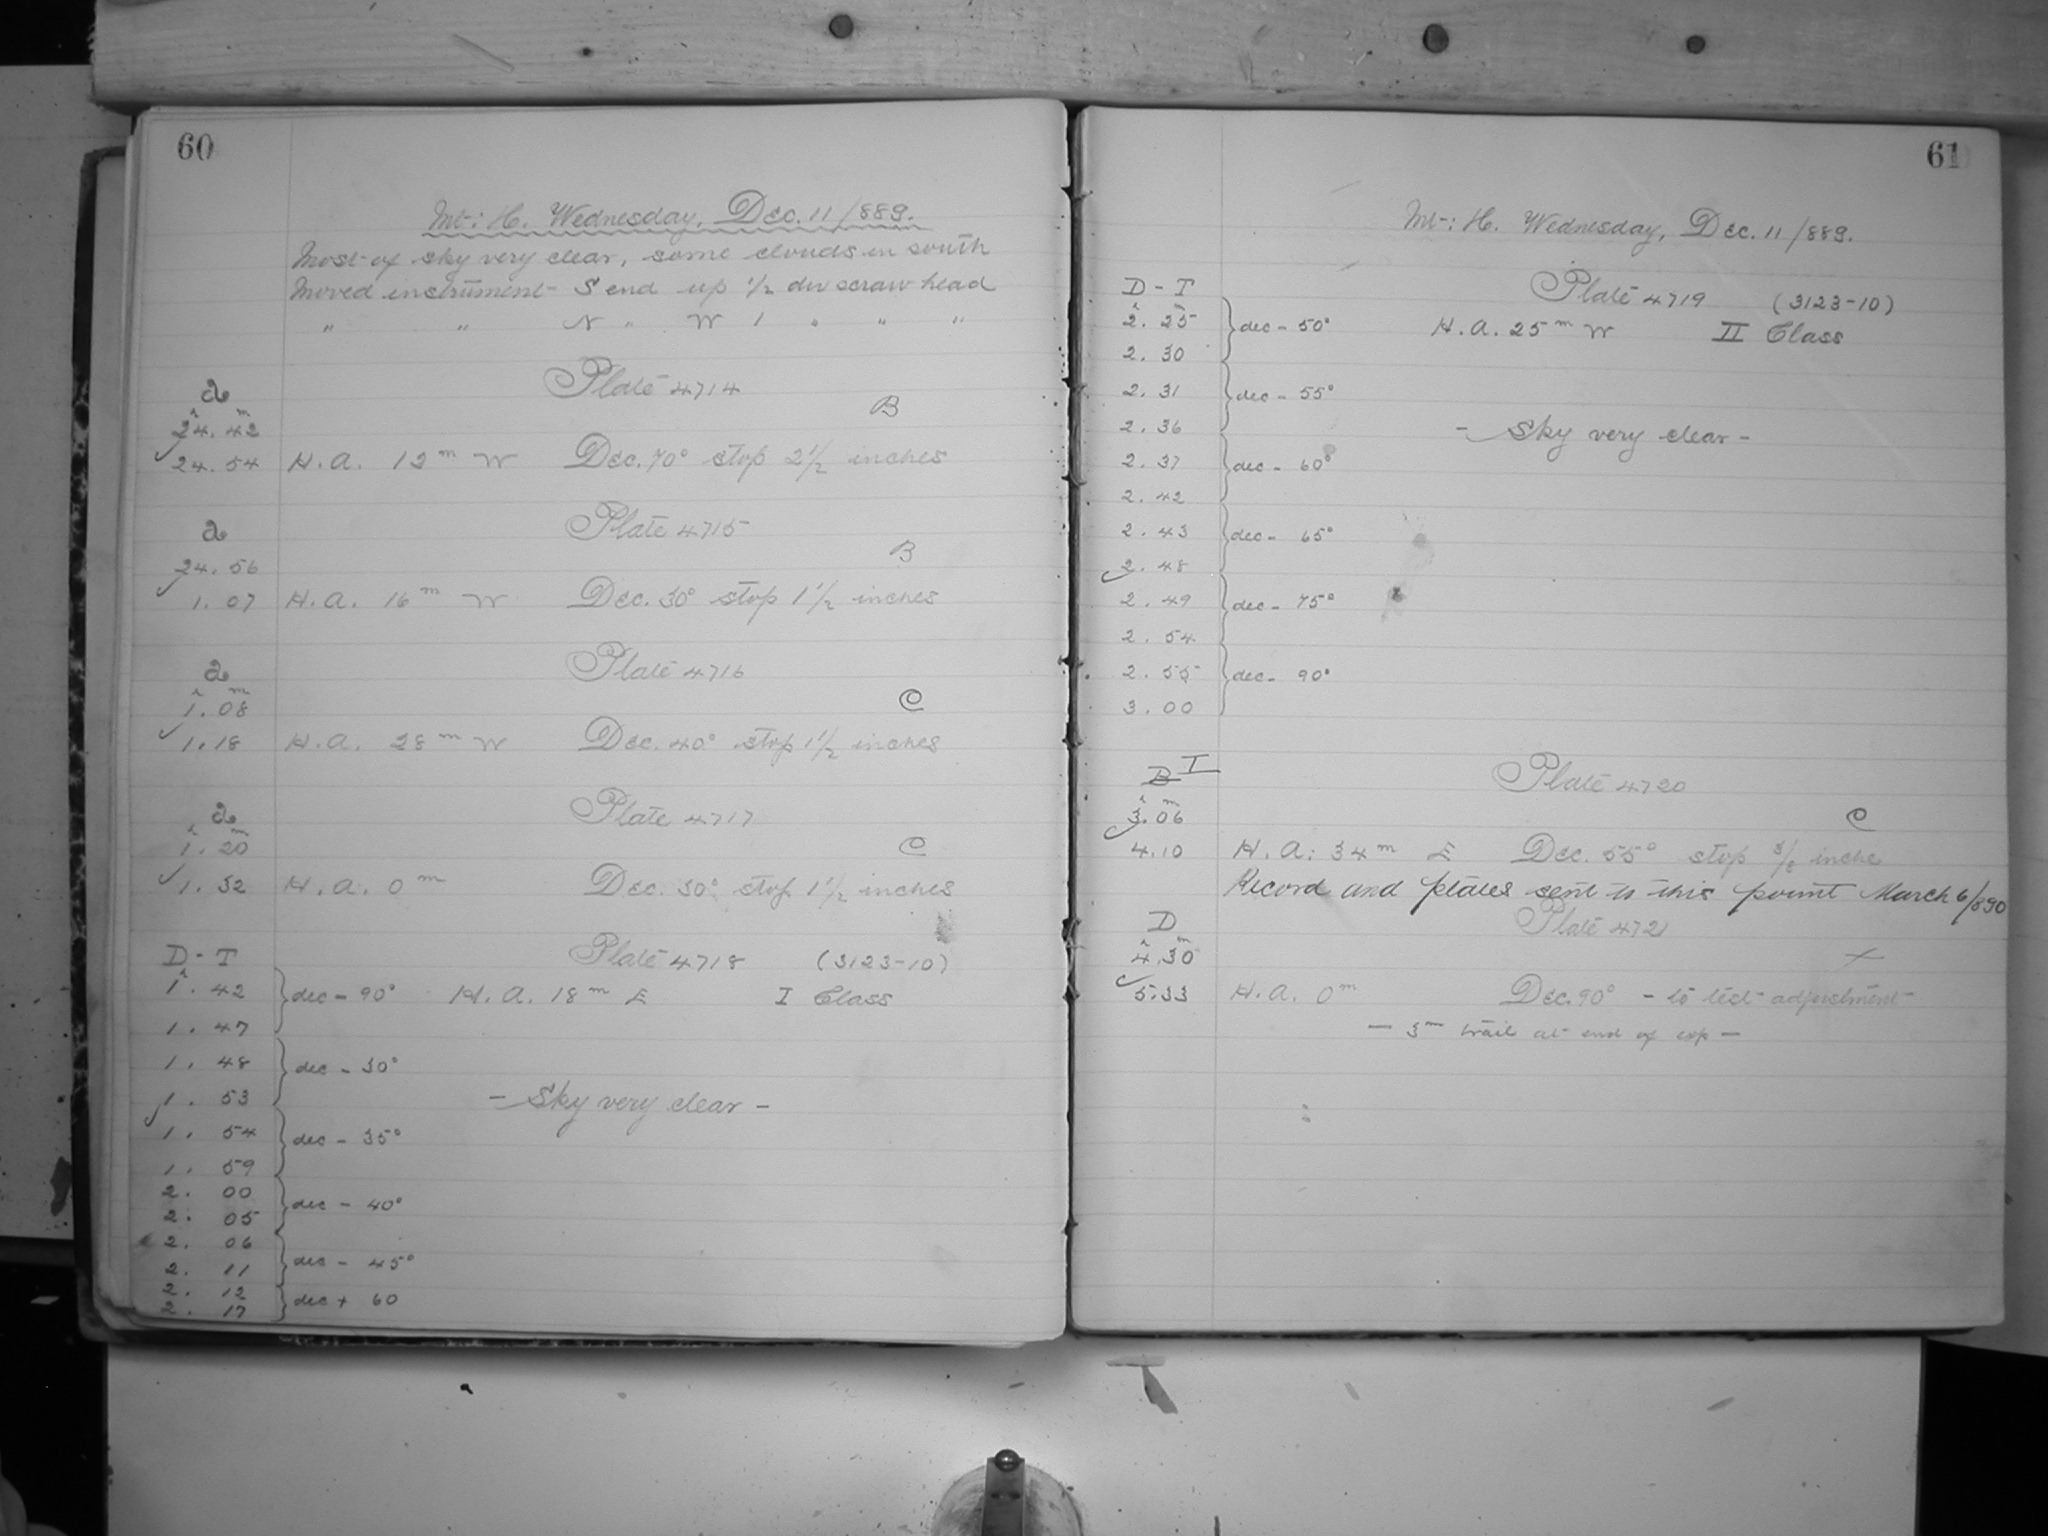 60
Mt: H. Wednesday, Dec. 11/889.
Most of sky very clear, some clouds in south
Moved instrument - S end up 1/2 div screw head
" " N " W 1 " " "
a Plate 4714
h m B
24.42
24.54 H.A. 12m W Dec. 70° stop 2 1/2 inches
a Plate 4715
24.56 B
1.07 H.A. 16m W Dec. 30° stop 1 1/2 inches
a Plate 4716
h m C
1.08
1.18 H.A. 28m W Dec. 40° stop 1 1/2 inches
a Plate 4717
h m
1.20 C
1.32 H.A. 0m Dec. 30° stop 1 1/2 inches
D - T Plate 4718 (3123-10)
h
1.42 dec - 90° H.A. 18m E I Class
1.47
1.48 dec - 30°
1.53 - Sky very clear -
1.54 dec - 35°
1.59
2.00 dec - 40°
2.05
2.06 dec - 45°
2.11
2.12 dec + 60
2.17
61
Mt: H. Wednesday, Dec. 11/889.
D - T Plate 4719 (3123-10)
h m
2.25 dec - 50° H.A. 25m W II Class
2.30
2.31 dec - 55°
2.36 - Sky very clear -
2.37 dec - 60°
2.42
2.43 dec - 65°
2.48
2.49 dec - 75°
2.54
2.55 dec - 90°
3.00
B I Plate 4720
h m
3.06 C
4.10 H.A: 34m E Dec. 55° stop inche
Record and plates sent to this point March 6/890
D Plate 4721
h m
4.30 x
5.33 H.A. 0m Dec. 90° - to test adjustment
- 3m trail at end of exp -